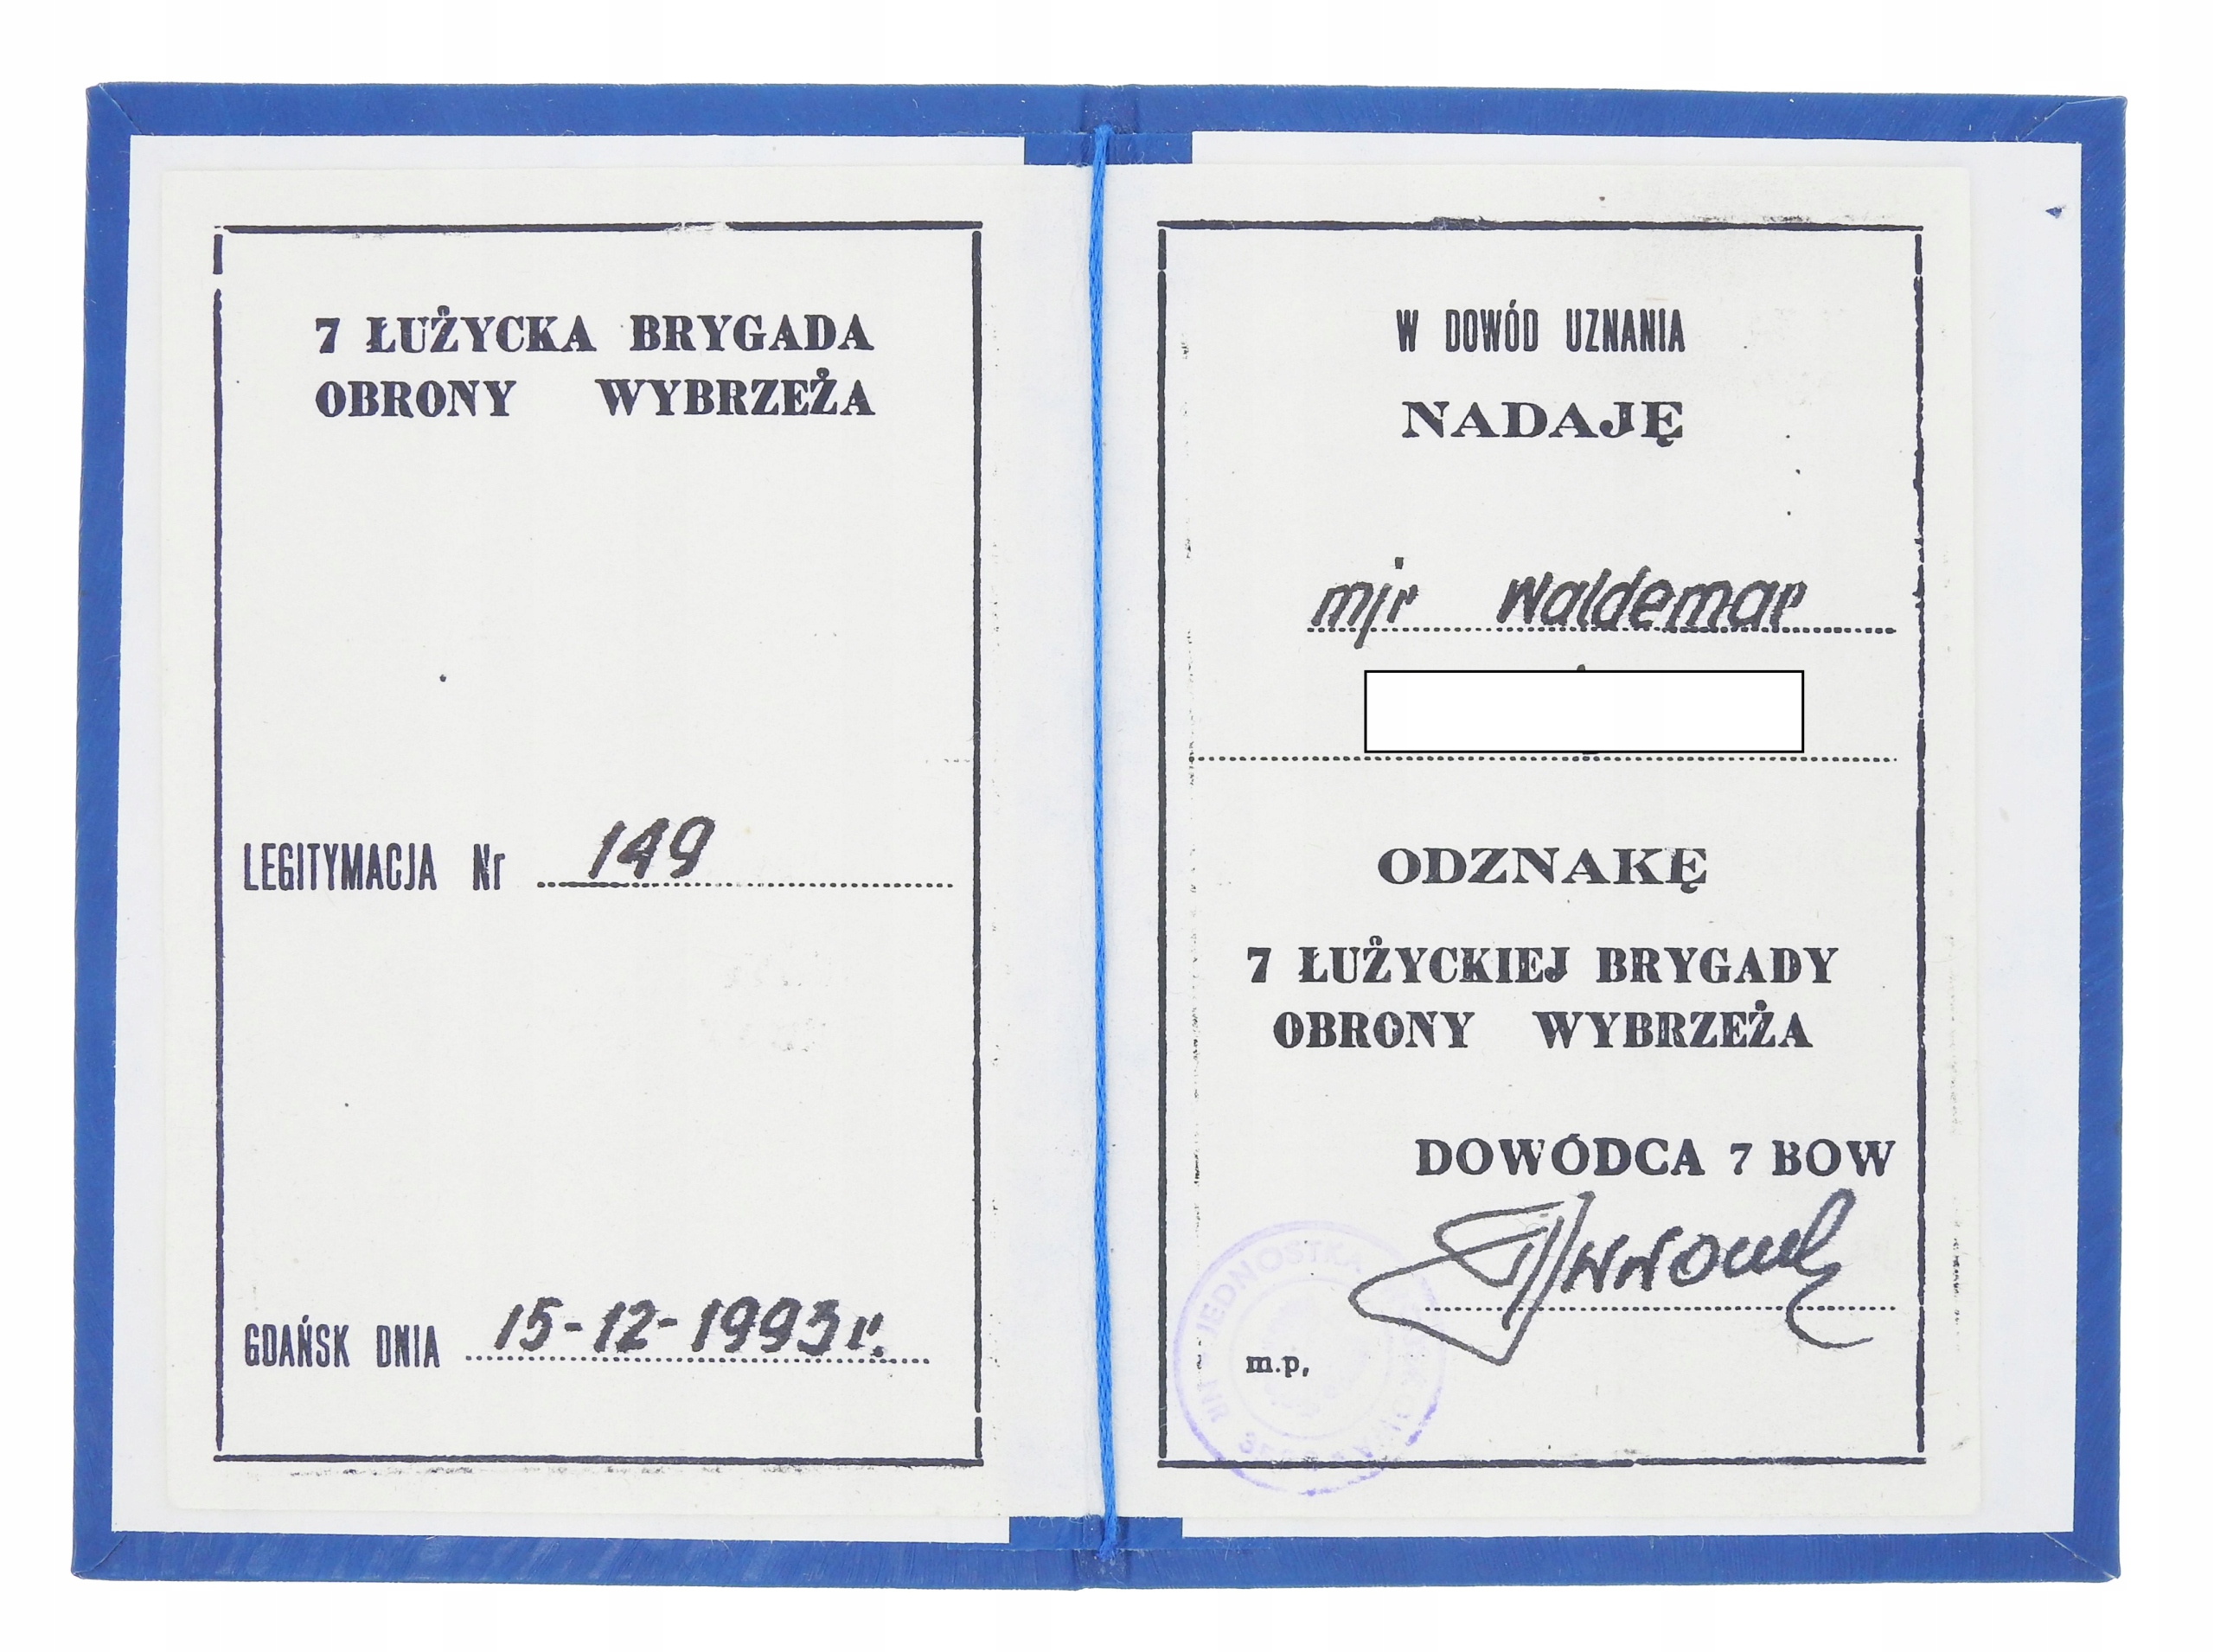 7 ŁUŻYCKA BRYGADA
OBRONY WYBRZEŻA
LEGITYMACJA Nr 149
GDAŃSK DNIA 15-12-1993 r.
W DOWÓD UZNANIA
NADAJĘ
mjr Waldemar
ODZNAKĘ
7 ŁUŻYCKIEJ BRYGADY
OBRONY WYBRZEŻA
DOWÓDCA 7 BOW
m.p,
JEDNOSTKA